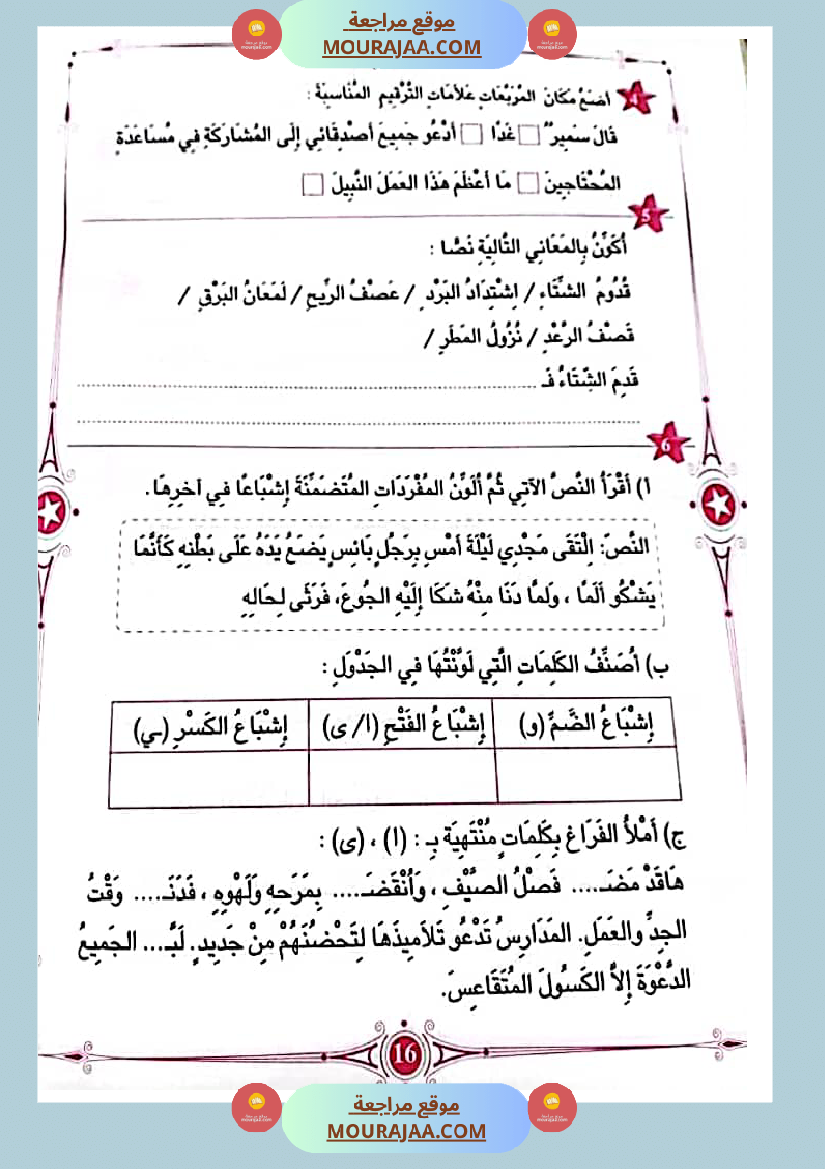 موقع مراجعة
MOURAJAA.COM
4
أَضَعُ مَكَانَ المُرَبَّعَاتِ عَلاَمَاتِ التَّرْقِيمِ المُنَاسِبَةَ :
قَالَ سَمِيرٌ □ غَدًا □ أَدْعُو جَمِيعَ أَصْدِقَائِي إِلَى المُشَارَكَةِ فِي مُسَاعَدَةِ
المُحْتَاجِينَ □ مَا أَعْظَمَ هَذَا العَمَلَ النَّبِيلَ □
5
أُكَوِّنُ بِالمَعَانِي التَّالِيَةِ نَصًّا :
قُدُومُ الشِّتَاءِ / اِشْتِدَادُ البَرْدِ / عَصْفُ الرِّيحِ / لَمَعَانُ البَرْقِ /
قَصْفُ الرَّعْدِ / نُزُولُ المَطَرِ /
قَدِمَ الشِّتَاءُ فَـ ................
................
6
أ) أَقْرَأُ النَّصَّ الآتِي ثُمَّ أُلَوِّنُ المُفْرَدَاتِ المُتَضَمِّنَةَ إِشْبَاعًا فِي آخِرِهَا.
النَّصّ: اِلْتَقَى مَجْدِي لَيْلَةَ أَمْسِ بِرَجُلٍ بَائِسٍ يَضَعُ يَدَهُ عَلَى بَطْنِهِ كَأَنَّمَا
يَشْكُو أَلَمًا ، وَلَمَّا دَنَا مِنْهُ شَكَا إِلَيْهِ الجُوعَ، فَرَثَى لِحَالِهِ
ب) أُصَنِّفُ الكَلِمَاتِ الَّتِي لَوَّنْتُهَا فِي الجَدْوَلِ :
إِشْبَاعُ الضَّمِّ (و) إِشْبَاعُ الفَتْحِ (ا/ ى) إِشْبَاعُ الكَسْرِ (ـي)
ج) أَمْلَأُ الفَرَاغَ بِكَلِمَاتٍ مُنْتَهِيَةٍ بِـ : (ا) ، (ى) :
هَاقَدْ مَضَـ.... فَصْلُ الصَّيْفِ ، وَاُنْقَضَـ.... بِمَرَحِهِ وَلَهْوِهِ ، فَدَنَـ.... وَقْتُ
الجِدِّ والعَمَلِ. المَدَارِسُ تَدْعُو تَلاَمِيذَهَا لِتَحْضُنَهُمْ مِنْ جَدِيدٍ. لَبَّـ... الجَمِيعُ
الدَّعْوَةَ إِلاَّ الكَسُولَ المُتَقَاعِسَ.
16
موقع مراجعة
MOURAJAA.COM